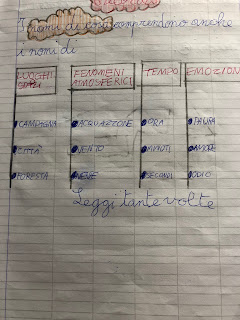 I nomi di cosa comprendono anche
i nomi di
LUOGHI FENOMENI TEMPO EMOZIONI
ATMOSFERICI
CAMPAGNA ACQUAZZONE ORA PAURA
CITTÀ VENTO MINUTI AMORE
FORESTA NEVE SECONDI ODIO
Leggi tante volte